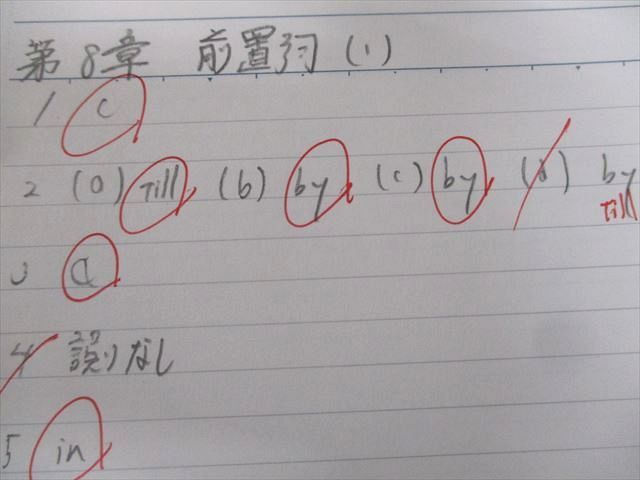 第8章 前置詞 (1)
1 C
2 (a) Till (b) by (c) by (d) by
Till
3 a
4 誤りなし
5 in